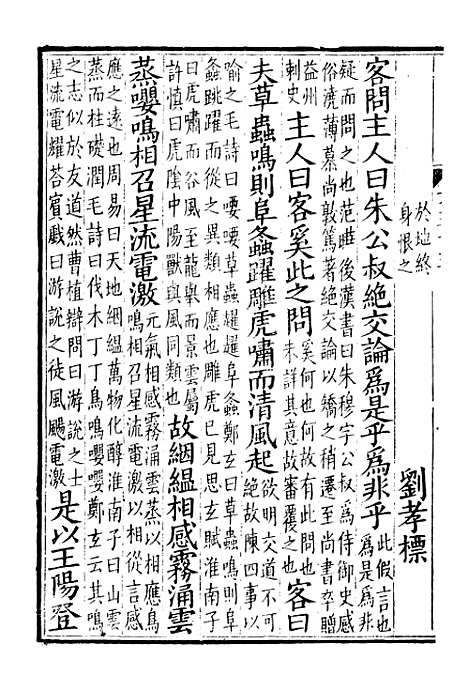 於地終
身恨之
劉孝標
客問主人曰朱公叔絶交論爲是乎爲非乎
此假言也
爲是爲非
疑而問之也范曄後漢書曰朱穆字公叔爲侍御史感
俗澆薄慕尚敦篤著絶交論以矯之稍遷至尚書卒贈
益州
刺史
主人曰客奚此之問
奚何也何故有此問也
未詳其意故審覆之也
客曰
夫草蟲鳴則阜螽躍雕虎嘯而清風起
欲明交道不可
絶故陳四事以
喻之毛詩曰喓喓草蟲趯趯阜螽鄭玄曰草蟲鳴則阜
螽跳躍而從之異類相應也雕虎已見思玄賦淮南子
曰虎嘯而谷風至龍舉而景雲屬
許慎曰虎陰中陽獸與風同類也
故絪縕相感霧涌雲
蒸嚶鳴相召星流電激
元氣相感霧涌雲蒸以相應鳥
鳴相召星流電激以相從言感
應之遠也周易曰天地絪縕萬物化醇淮南子曰山雲
蒸而柱礎潤毛詩曰伐木丁丁鳥鳴嚶嚶鄭玄云其鳴
之志似於友道然曹植辯問曰游說之士
星流電耀荅賓戲曰游說之徒風颺電激
是以王陽登